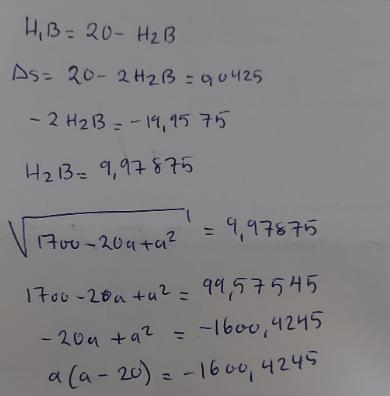 H₁B = 20 - H₂B
Δs = 20 - 2H₂B = 0,0425
-2H₂B = -19,9575
H₂B = 9,97875
√(1700 - 20a + a²) = 9,97875
1700 - 20a + a² = 99,57545
-20a + a² = -1600,4245
a(a - 20) = -1600,4245